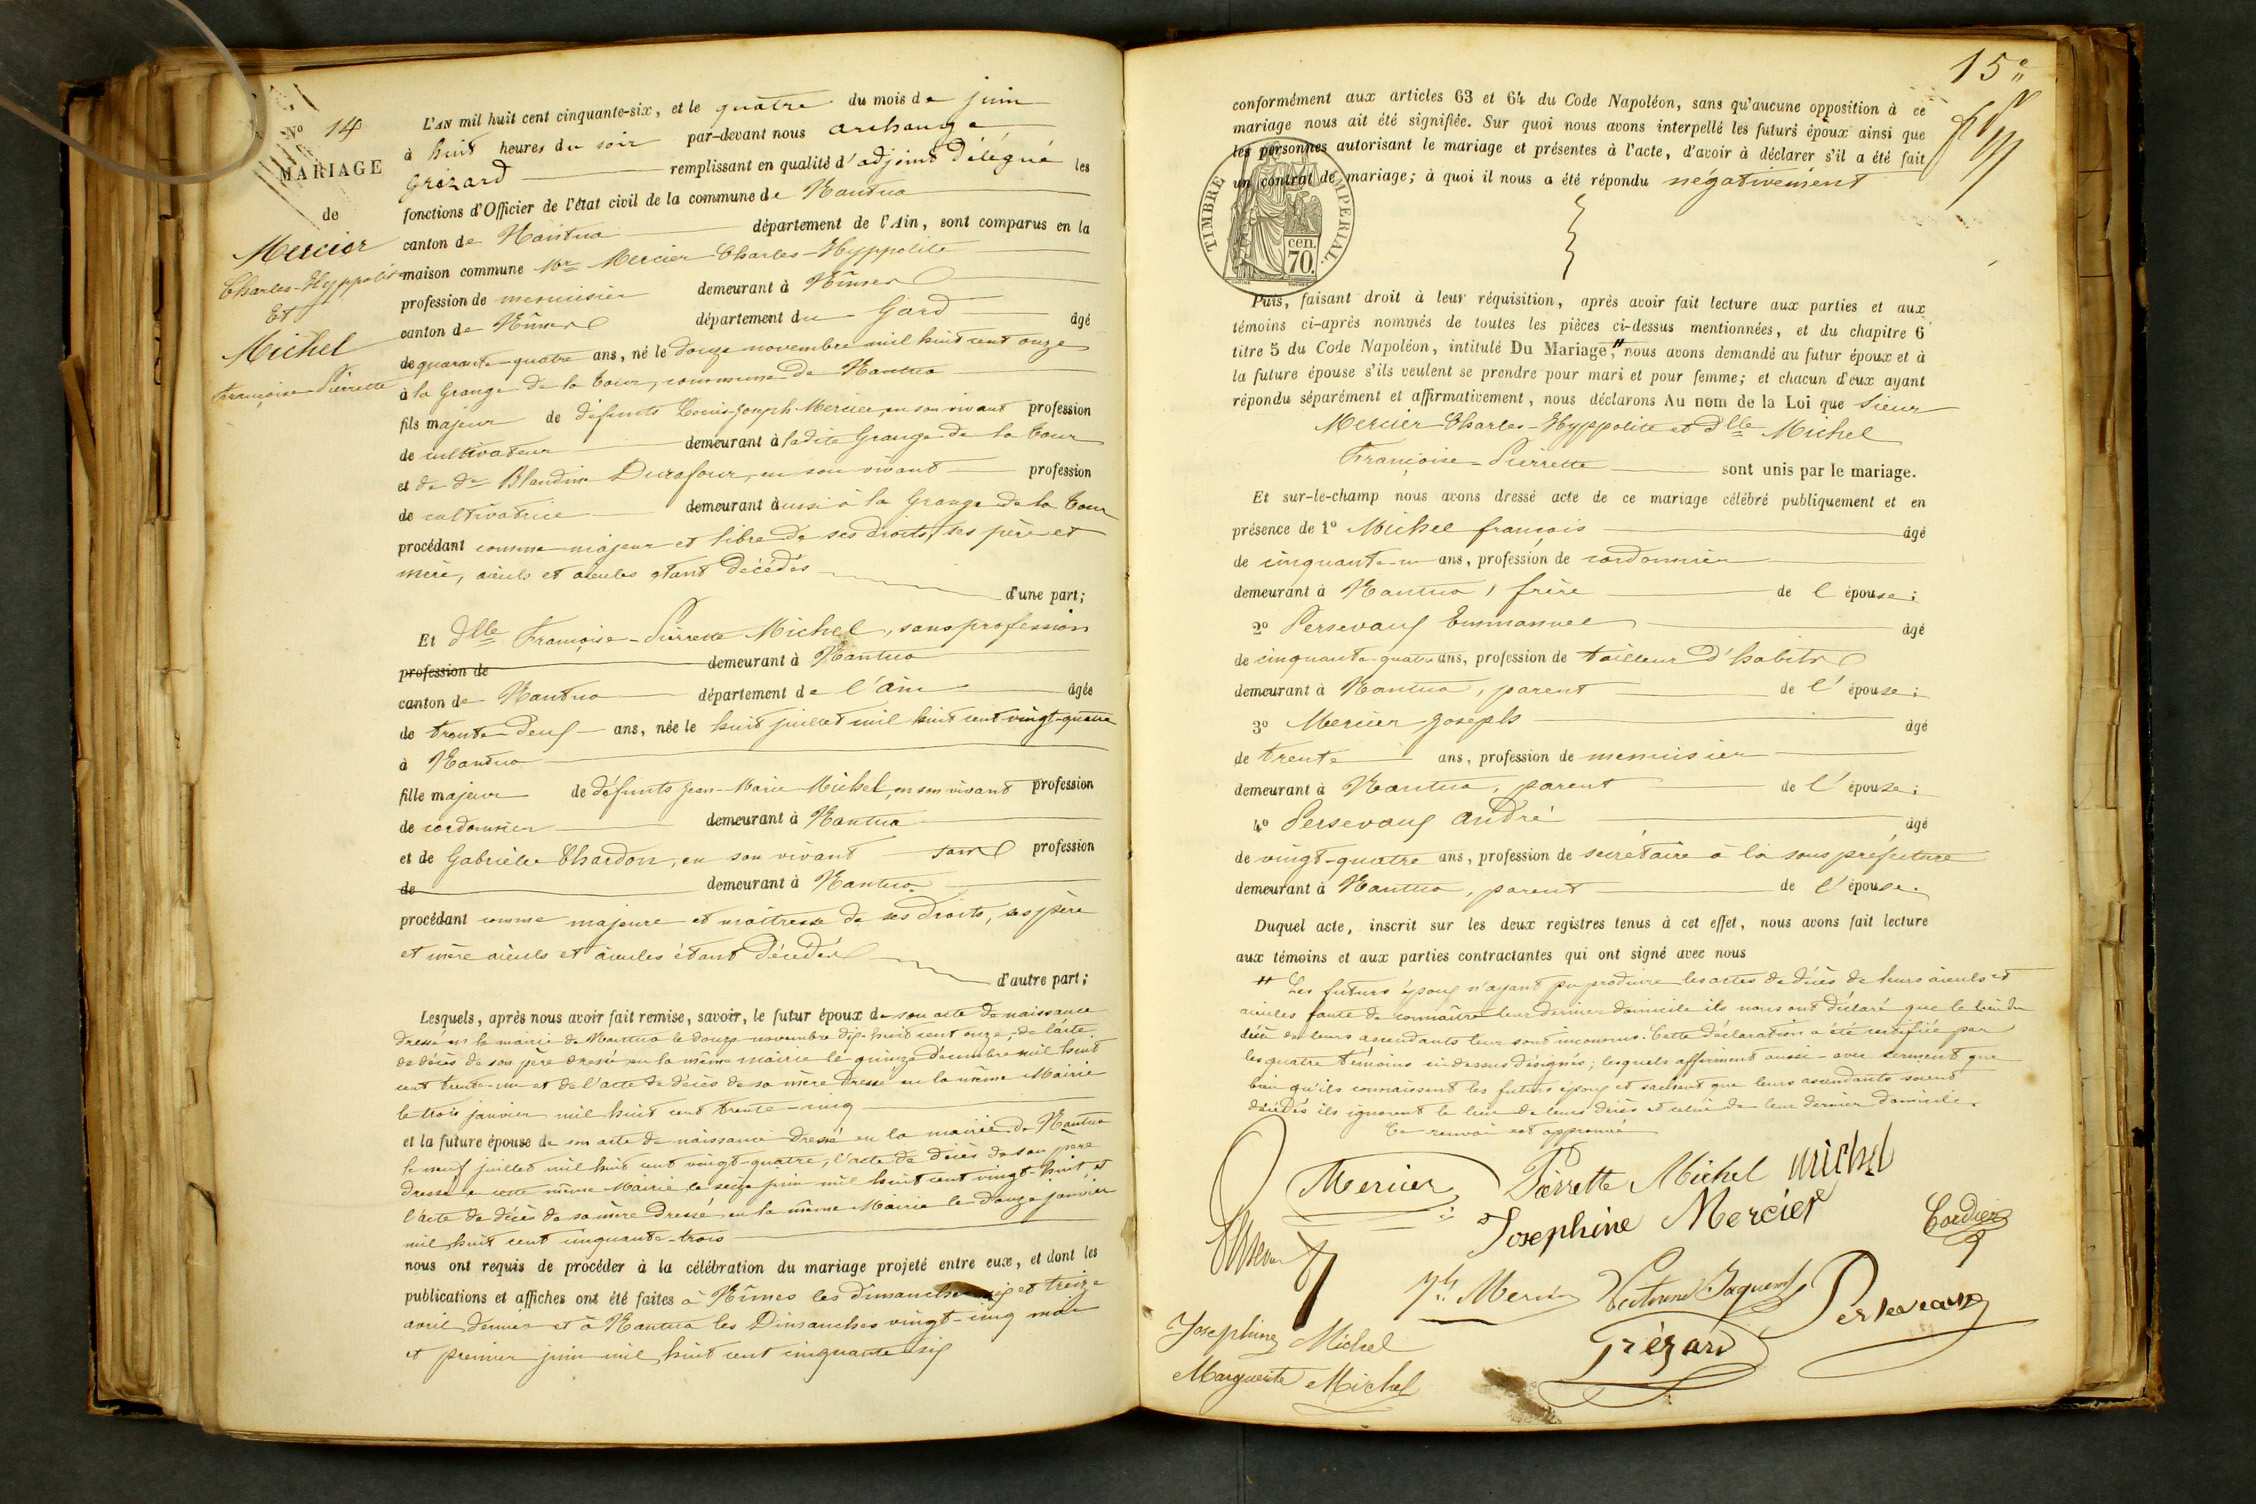 Nº 14
MARIAGE
de
Mercier
Charles-Hyppolite
Et
Michel
Françoise-Pierrette
L'AN mil huit cent cinquante-six, et le quatre du mois de juin
à huit heures du soir par-devant nous archange
Grézard remplissant en qualité d'adjoint Délégué les
fonctions d'Officier de l'état civil de la commune de Nantua
canton de Nantua département de l'Ain, sont comparus en la
maison commune Mr Mercier Charles-Hyppolite
profession de menuisier demeurant à Nîmes
canton de Nîmes département du Gard âgé
de quarante-quatre ans, né le douze novembre mil huit cent onze
à la Grange de la Tour, commune de Nantua
fils majeur de défunts Louis-Joseph Mercier, en son vivant profession
de cultivateur demeurant à ladite Grange de la Tour
et de de Blandine Durafour, en son vivant profession
de cultivatrice demeurant aussi à la Grange de la Tour
procédant comme majeur et libre de ses droits, ses père et
mère, aïeuls et aïeules étant décédés
d'une part;
Et Dlle Françoise-Pierrette Michel, sans profession
profession de demeurant à Nantua
canton de Nantua département de l'Ain âgée
de trente-deux ans, née le huit juillet mil huit cent vingt-quatre
à Nantua
fille majeure de défunts Jean-Marie Michel, en son vivant profession
de cordonnier demeurant à Nantua
et de Gabrielle Chardon, en son vivant sans profession
de demeurant à Nantua
procédant comme majeure et maîtresse de ses droits, ses père
et mère aïeuls et aïeules étant décédés
d'autre part;
Lesquels, après nous avoir fait remise, savoir, le futur époux de son acte de naissance
dressé en la mairie de Nantua le douze novembre dix-huit cent onze, de l'acte
de décès de son père dressé en la même mairie le quinze décembre mil huit
cent trente-un et de l'acte de décès de sa mère dressé en la même Mairie
le trois janvier mil huit cent trente-cinq
et la future épouse de son acte de naissance dressé en la mairie de Nantua
le neuf juillet mil huit cent vingt-quatre, l'acte de décès de son père
dressé en cette même Mairie le seize juin mil huit cent vingt-huit, et
l'acte de décès de sa mère dressé en la même Mairie le douze janvier
mil huit cent cinquante-trois
nous ont requis de procéder à la célébration du mariage projeté entre eux, et dont les
publications et affiches ont été faites à Nîmes les dimanches six et treize
avril dernier et à Nantua les Dimanches vingt-cinq mai
et premier juin mil huit cent cinquante six
15e
conformément aux articles 63 et 64 du Code Napoléon, sans qu'aucune opposition à ce
mariage nous ait été signifiée. Sur quoi nous avons interpellé les futurs époux ainsi que
les personnes autorisant le mariage et présentes à l'acte, d'avoir à déclarer s'il a été fait
un contrat de mariage; à quoi il nous a été répondu négativement
TIMBRE IMPERIAL.
cen.
70.
Puis, faisant droit à leur réquisition, après avoir fait lecture aux parties et aux
témoins ci-après nommés de toutes les pièces ci-dessus mentionnées, et du chapitre 6
titre 5 du Code Napoléon, intitulé Du Mariage, " nous avons demandé au futur époux et à
la future épouse s'ils veulent se prendre pour mari et pour femme; et chacun d'eux ayant
répondu séparément et affirmativement, nous déclarons Au nom de la Loi que sieur
Mercier Charles-Hyppolite et Dlle Michel
Françoise-Pierrette sont unis par le mariage.
Et sur-le-champ nous avons dressé acte de ce mariage célébré publiquement et en
présence de 1º Michel françois âgé
de cinquante-un ans, profession de cordonnier
demeurant à Nantua, frère de l'épouse;
2º Persevaux Emmanuel âgé
de cinquante-quatre ans, profession de tailleur d'habits
demeurant à Nantua, parent de l'épouse;
3º Mercier Joseph âgé
de trente ans, profession de menuisier
demeurant à Nantua, parent de l'épouse;
4º Persevaux André âgé
de vingt-quatre ans, profession de secrétaire à la sous préfecture
demeurant à Nantua, parent de l'épouse.
Duquel acte, inscrit sur les deux registres tenus à cet effet, nous avons fait lecture
aux témoins et aux parties contractantes qui ont signé avec nous
" Les futurs époux n'ayant pu produire les actes de décès de leurs aïeuls et
aïeules faute de connaître leur dernier domicile ils nous ont déclaré que le lieu du
décès de leurs ascendants leur sont inconnus. Cette déclaration a été certifiée par
les quatre témoins ci-dessus désignés; lesquels affirment aussi avec serment que
bien qu'ils connaissent les futurs époux et sachent que leurs ascendants soient
décédés ils ignorent le lieu de leurs décès et celui de leur dernier domicile.
Ce renvoi est approuvé
Mercier Pierrette Michel Michel
Josephine Mercier Cordier
Jh Mercier Jaquemet Persevaux
Josephine Michel Grézard
Marguerite Michel